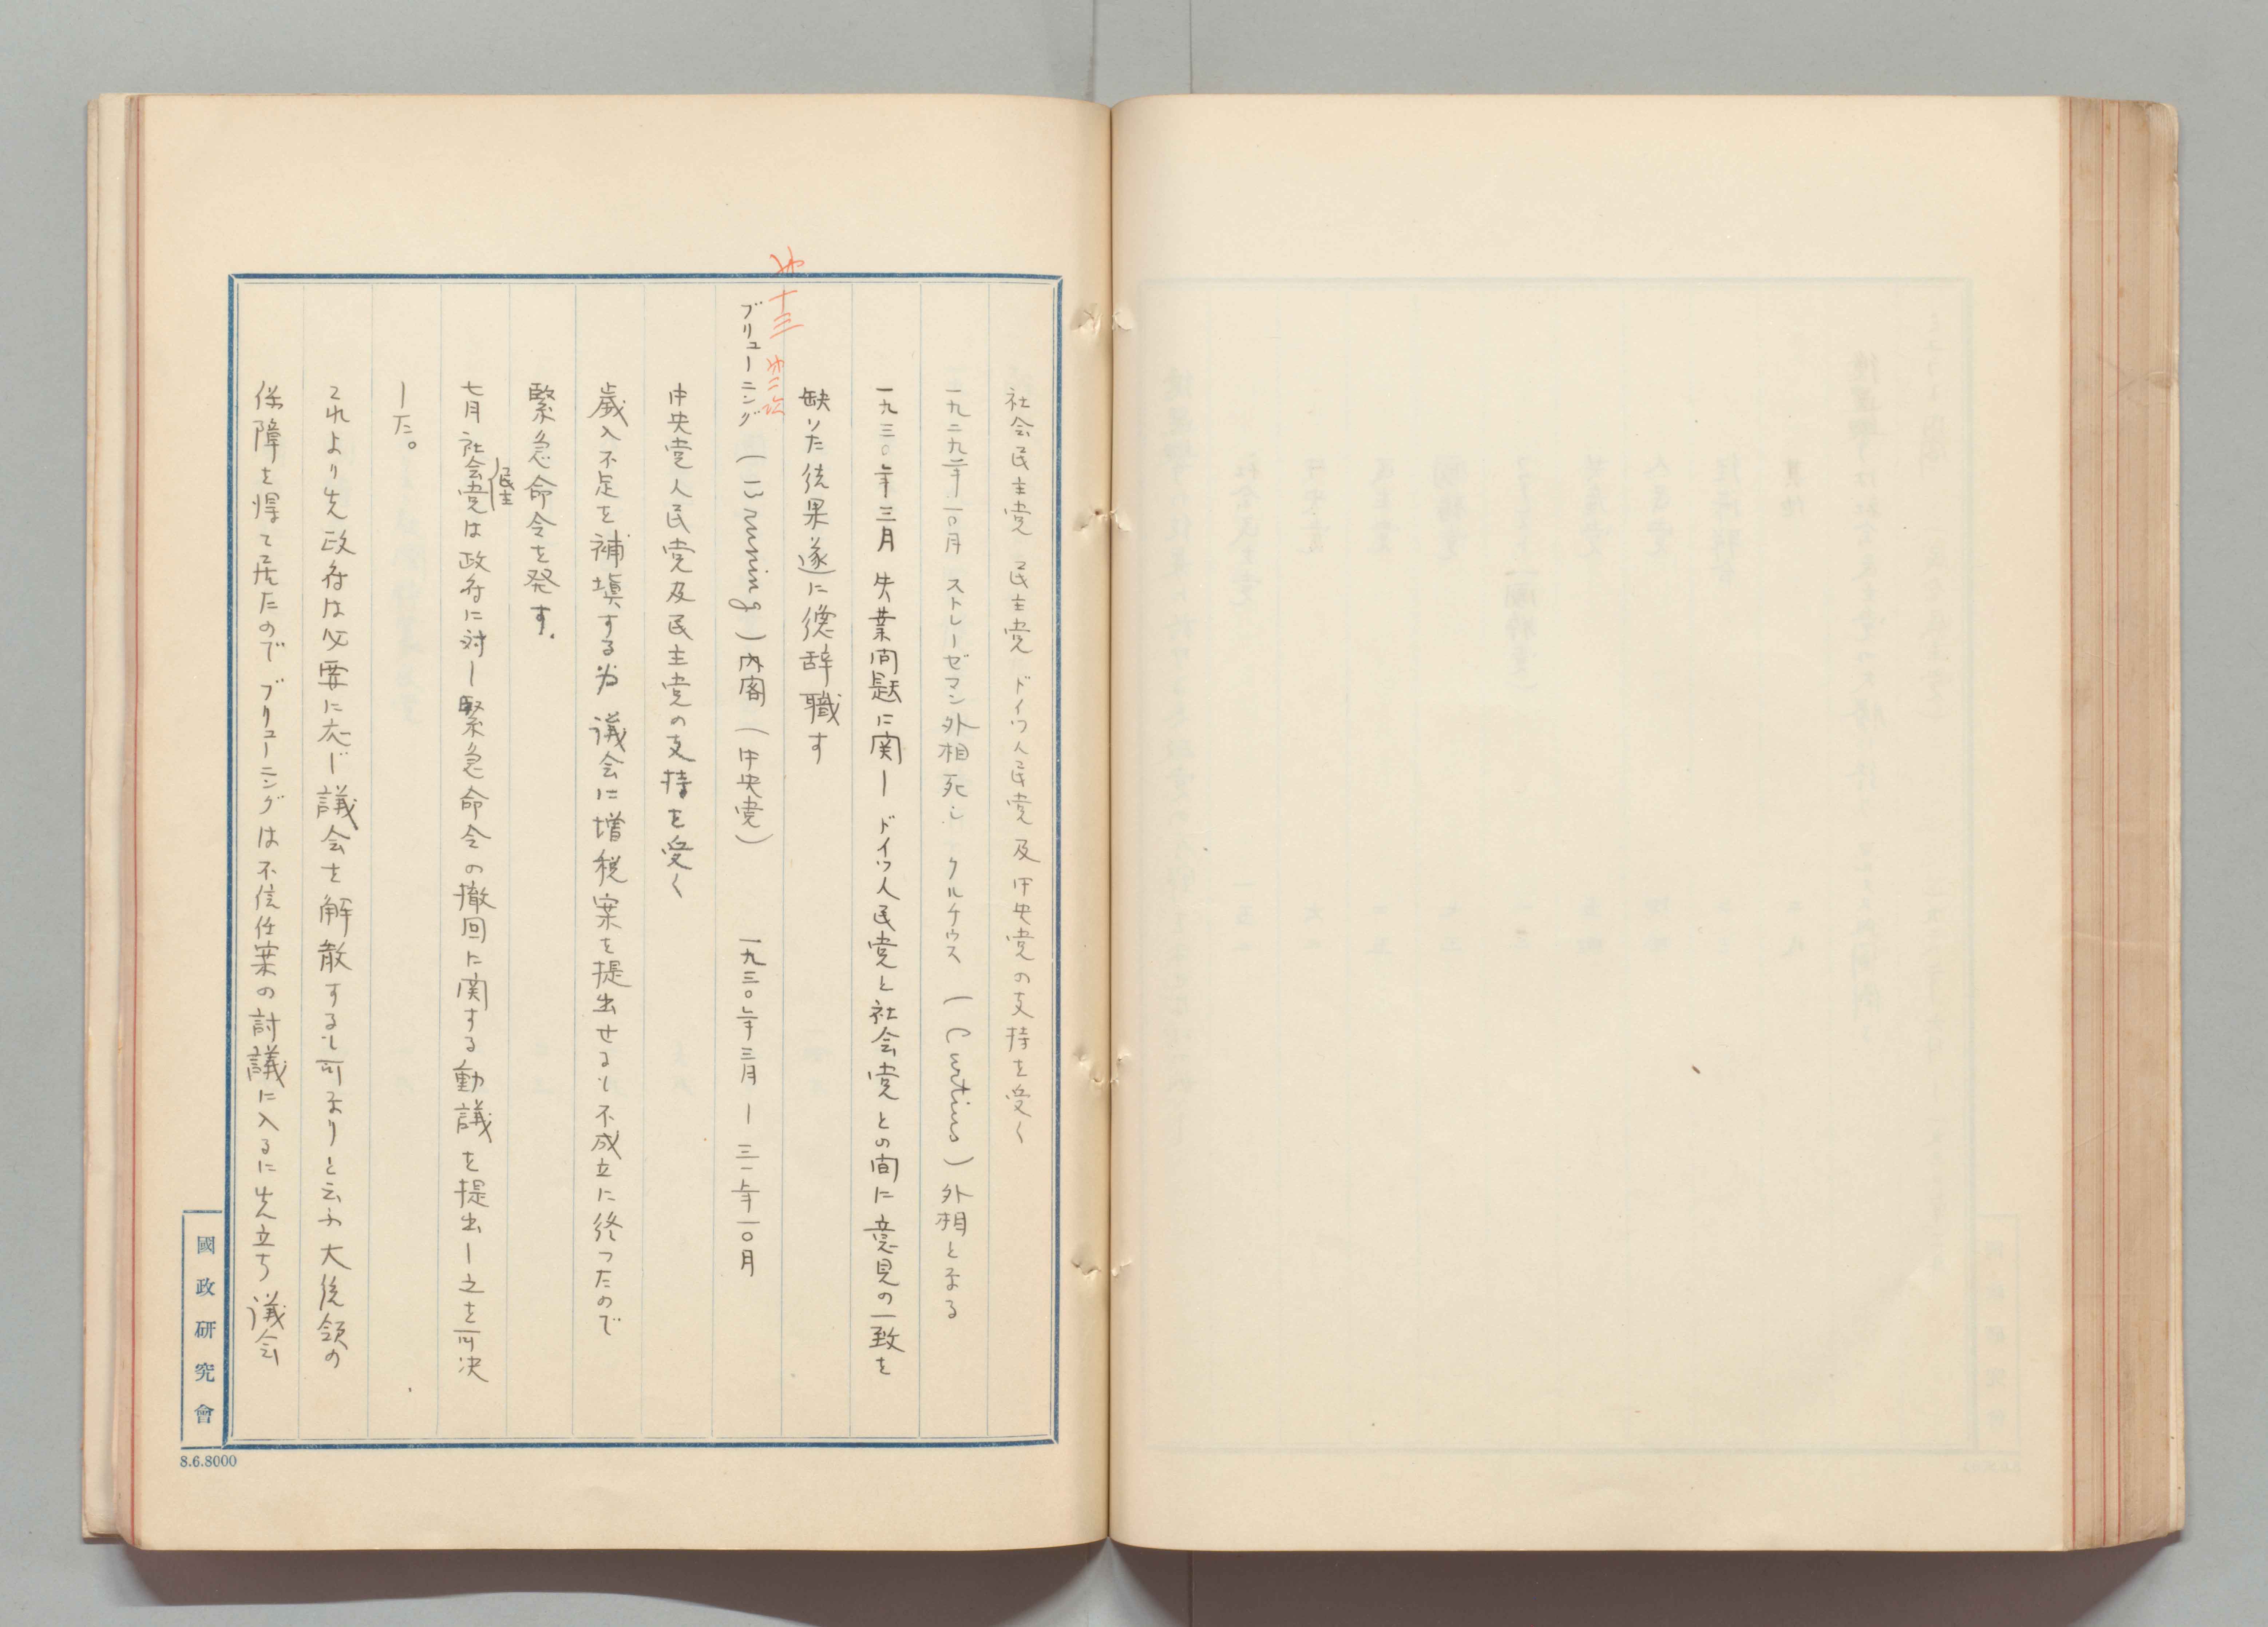 社会民主党 民主党 ドイツ人民党 及中央党の支持を受く
一九二九年一〇月 ストレーゼマン外相死し クルチウス (Curtius) 外相となる
一九三〇年三月 失業問題に関し ドイツ人民党と社会党との間に意見の一致を
缺いた結果遂に総辞職す
第十三 第二次
ブリューニング (Brüning) 内閣 (中央党) 一九三〇年三月 ー 三一年一〇月
中央党人民党及民主党の支持を受く
歳入不足を補填する為 議会に増税案を提出せるも不成立に終つたので
緊急命令を発す.
民主
七月社会党は政府に対し緊急命令の撤回に関する動議を提出し之を可決
した。
これより先政府は必要に応じ議会を解散するも可なりと云ふ大統領の
保障を得て居たので ブリューニングは不信任案の討議に入るに先立ち 議会
國政研究會
8.6.8000